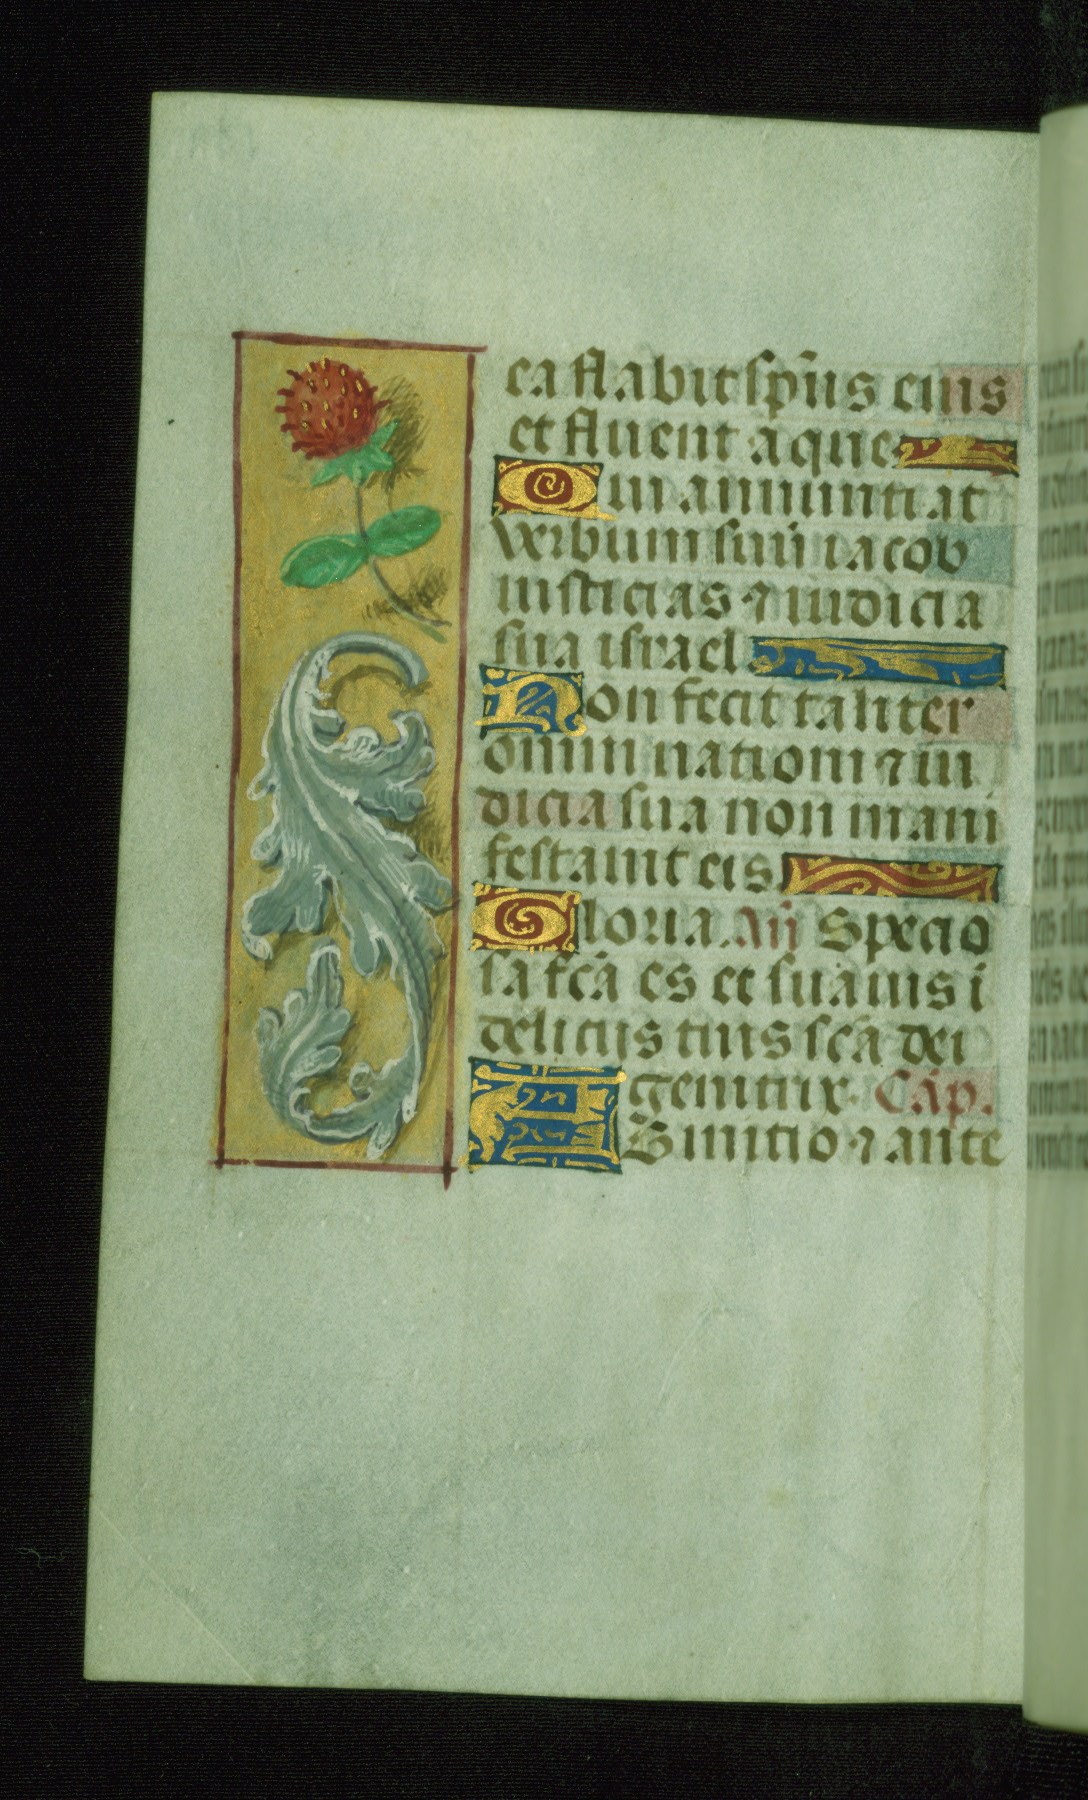 ea flabit sp̄us eius
et fluent aque
Qui annuntiat
verbum suū iacob
iusticias ⁊ iudicia
sua israel
Non fecit taliter
omni nationi ⁊ iu
dicia sua non mani
festauit eis
Gloria. Añ Specio
sa fcā es et suauis ī
delicijs tuis scā dei
genitrix. Cāp.
AB initio ⁊ ante